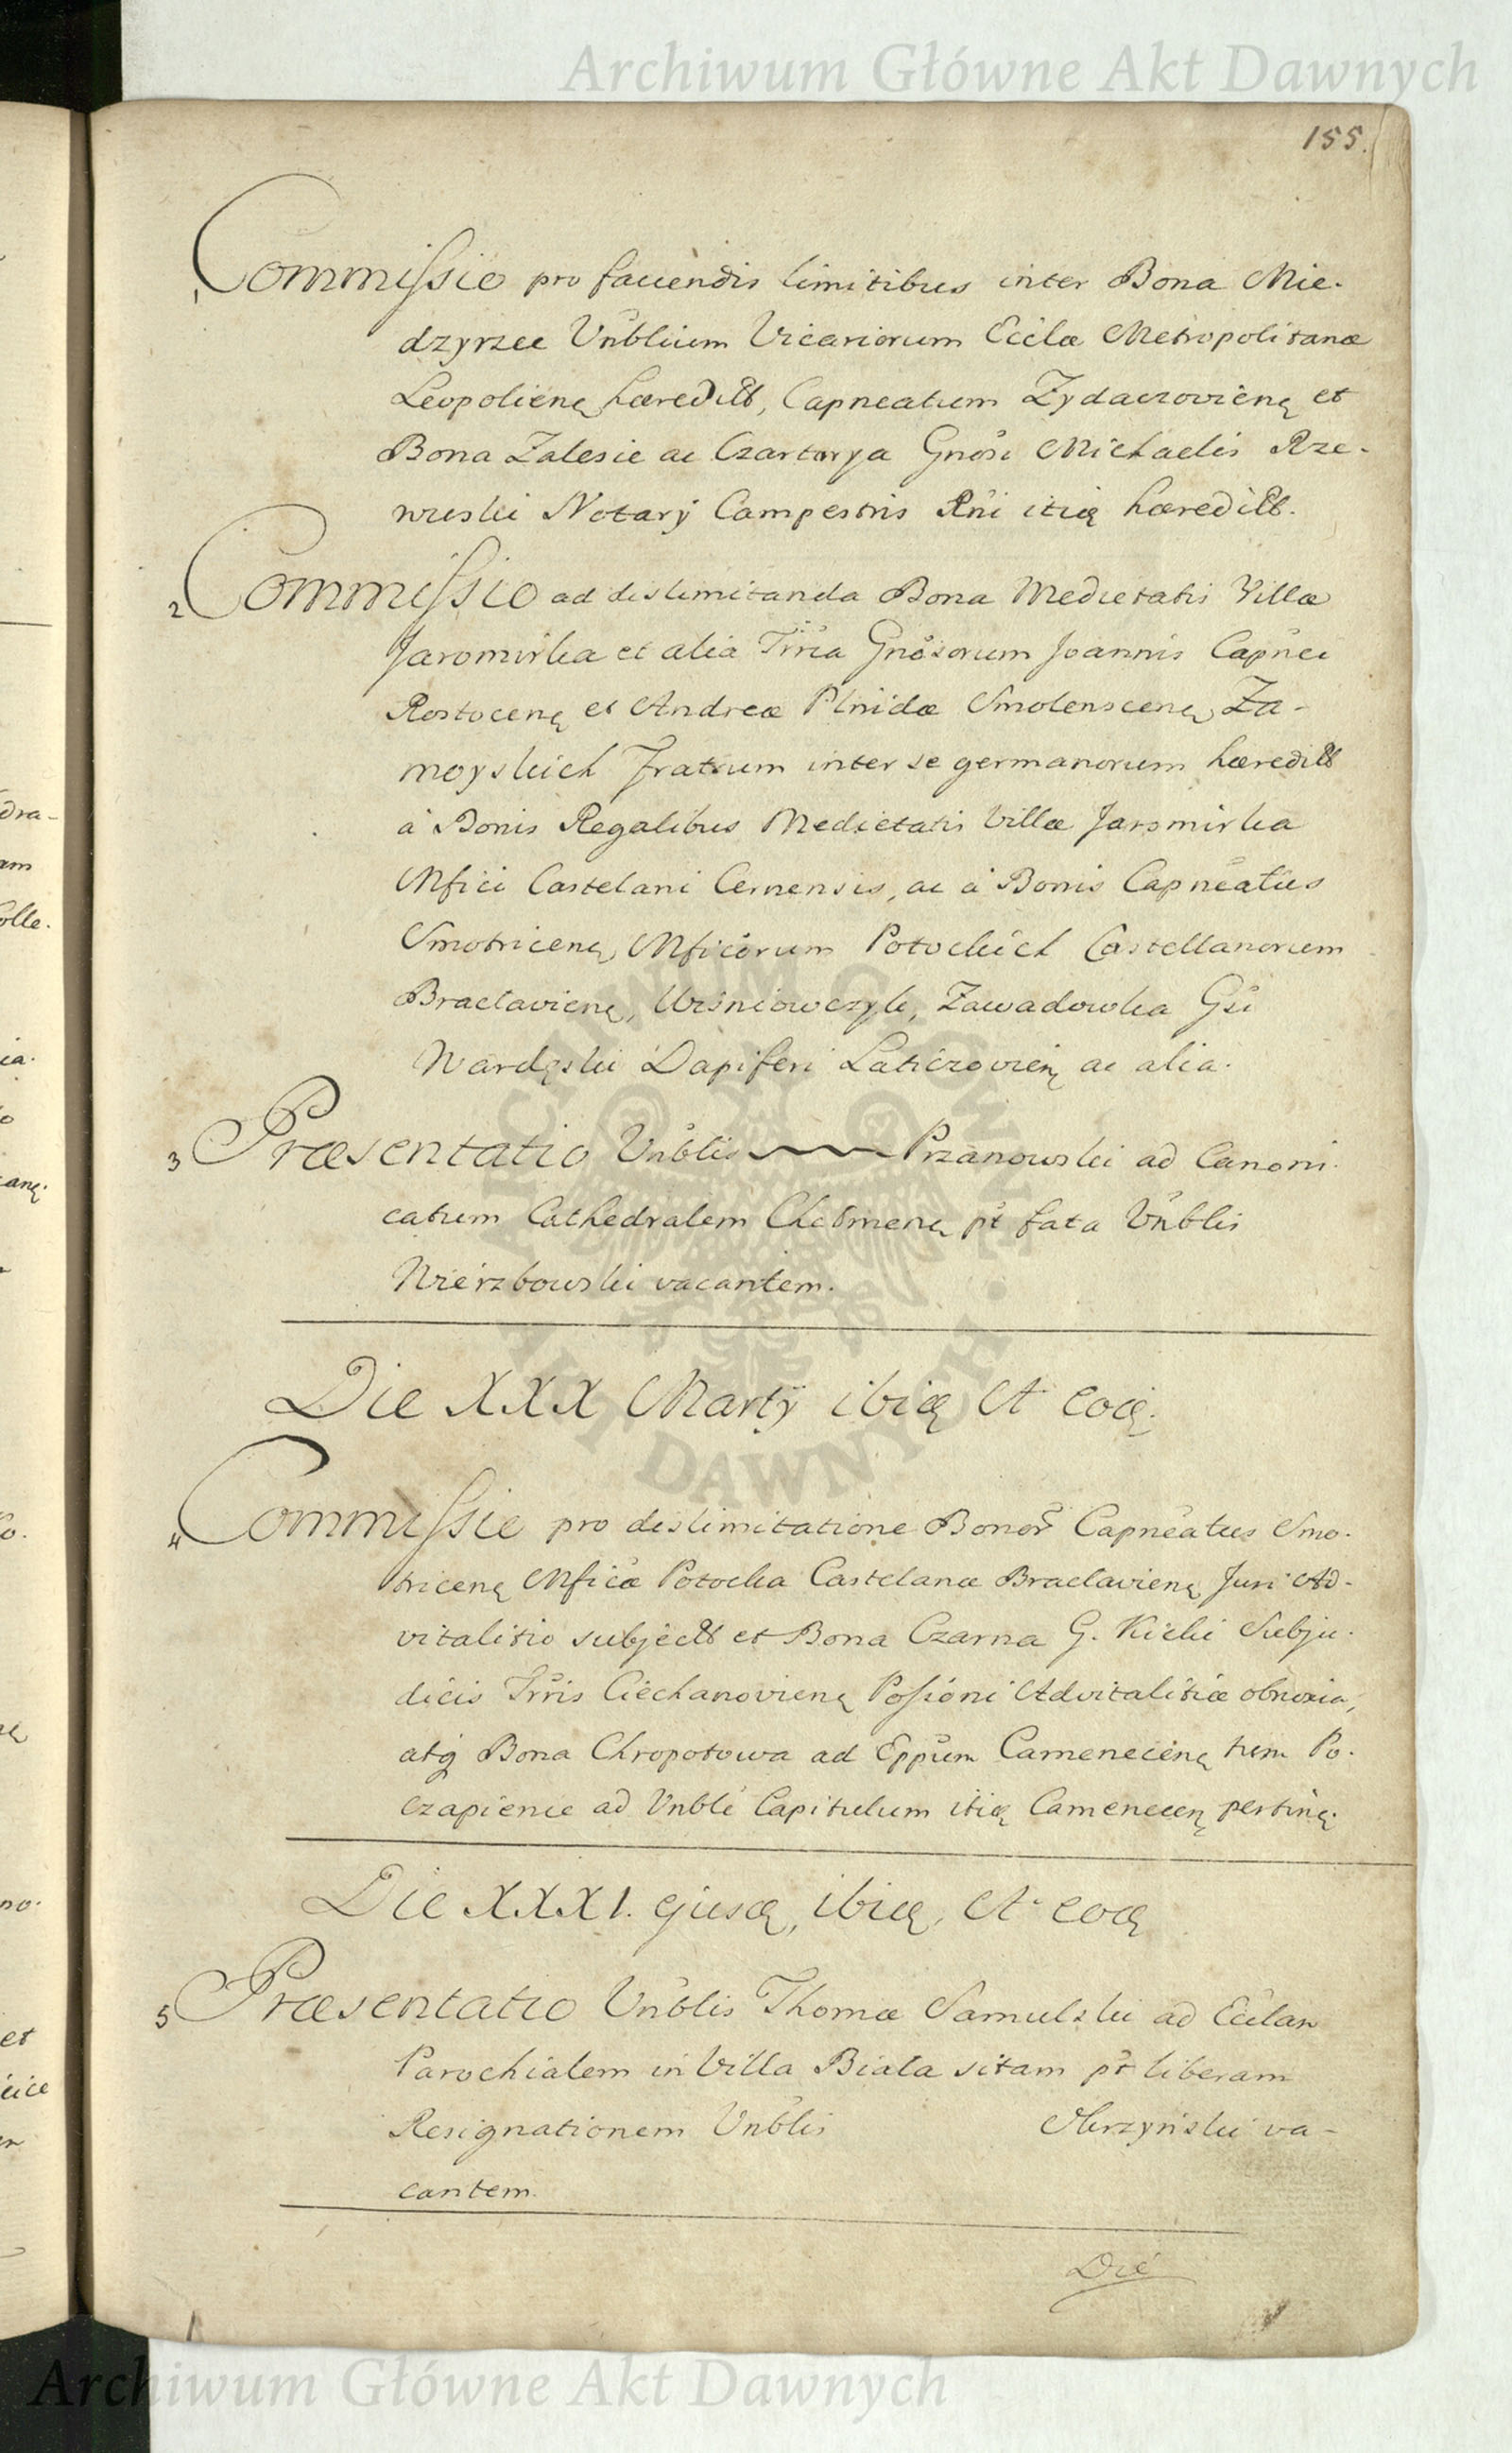 Archiwum Główne Akt Dawnych
155.
1 Commissio pro faciendis limitibus inter Bona Mie-
dzyrzec Vnblium Vicariorum Eccłæ Metropolitanæ
Leopolienę hæreditt, Capneatum Zydaczovienę et
Bona Zalesie ac Czartorya Gnosi Michaelis Rze-
wuski Notarÿ Campestris Rni itię hæreditt.
2 Commissio ad dislimitanda Bona Medietatis Villæ
Jaromirka et alia Trria Gnosorum Joannis Capnei
Rostocenę et Andreæ Plnidæ Smolenscenę Za-
moyskich Fratrum inter se germanorum hæreditt
à Bonis Regalibus Medietatis Villæ Jaromirka
Mfici Castelani Cernensis, ac à Bonis Capneatus
Smotricenę Mficorum Potockich Castellanorum
Braclavienę, Wiśniowczyk, Zawadowka Gsi
Wardęski Dapiferi Laticzovienę ac alia.
3 Præsentatio Vnblis Przanowski ad Canoni-
catum Cathedralem Chełmenę pt fata Vnblis
Wierzbowski vacantem.
Die XXX Martÿ ibię et eoę.
4 Commissio pro dislimitatione Bonor Capneatus Smo-
tricenę Mficæ Potocka Castelanæ Braclavienę Juri Ad-
vitalitio subjectt et Bona Czarna G. Kicki Subju-
dicis Trris Ciechanovienę Possioni Advitalitiæ obnoxia,
atq Bona Chropotowa ad Eppum Camenecenę tum Po-
czapience ad Vnble Capitulum itię Camenecenę pertinę.
Die XXXI. ejusę, ibię, et eoę
5 Præsentatio Vnblis Thomæ Samulski ad Ecclam
Parochialem in Villa Biała sitam pt liberam
Resignationem Vnblis Skrzyński va-
cantem.
Die
Archiwum Główne Akt Dawnych